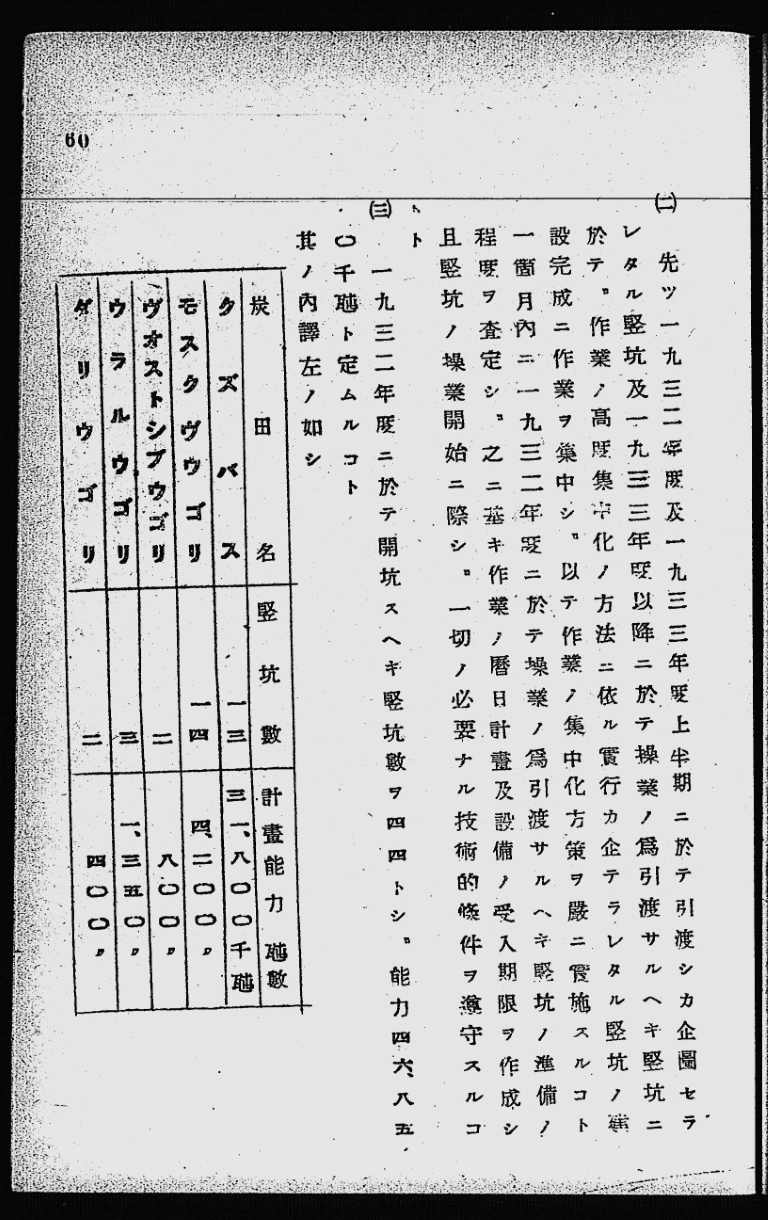 60
(二)
先ツ一九三二年度及一九三三年度上半期ニ於テ引渡シカ企圖セラ
レタル竪坑及一九三三年度以降ニ於テ操業ノ爲引渡サルヘキ竪坑ニ
於テ。作業ノ高度集中化ノ方法ニ依ル實行カ企テラレタル竪坑ノ建
設完成ニ作業ヲ集中シ。以テ作業ノ集中化方策ヲ嚴ニ實施スルコト
一箇月內ニ一九三二年度ニ於テ操業ノ爲引渡サルヘキ竪坑ノ準備ノ
程度ヲ査定シ。之ニ基キ作業ノ曆日計畫及設備ノ受入期限ヲ作成シ
且竪坑ノ操業開始ニ際シ。一切ノ必要ナル技術的條件ヲ遵守スルコ
ト
(三)
一九三二年度ニ於テ開坑スヘキ竪坑數ヲ四四トシ。能力四六、八五
〇千瓲ト定ムルコト
其ノ內譯左ノ如シ
炭田名 竪坑數 計畫能力瓲數
クズバス 一三 三一、八〇〇千瓲
モスクヴウゴリ 一四 四、二〇〇〃
ヴオストシブウゴリ 二 八〇〇〃
ウラルウゴリ 三 一、三五〇〃
ダリウゴリ 二 四〇〇〃